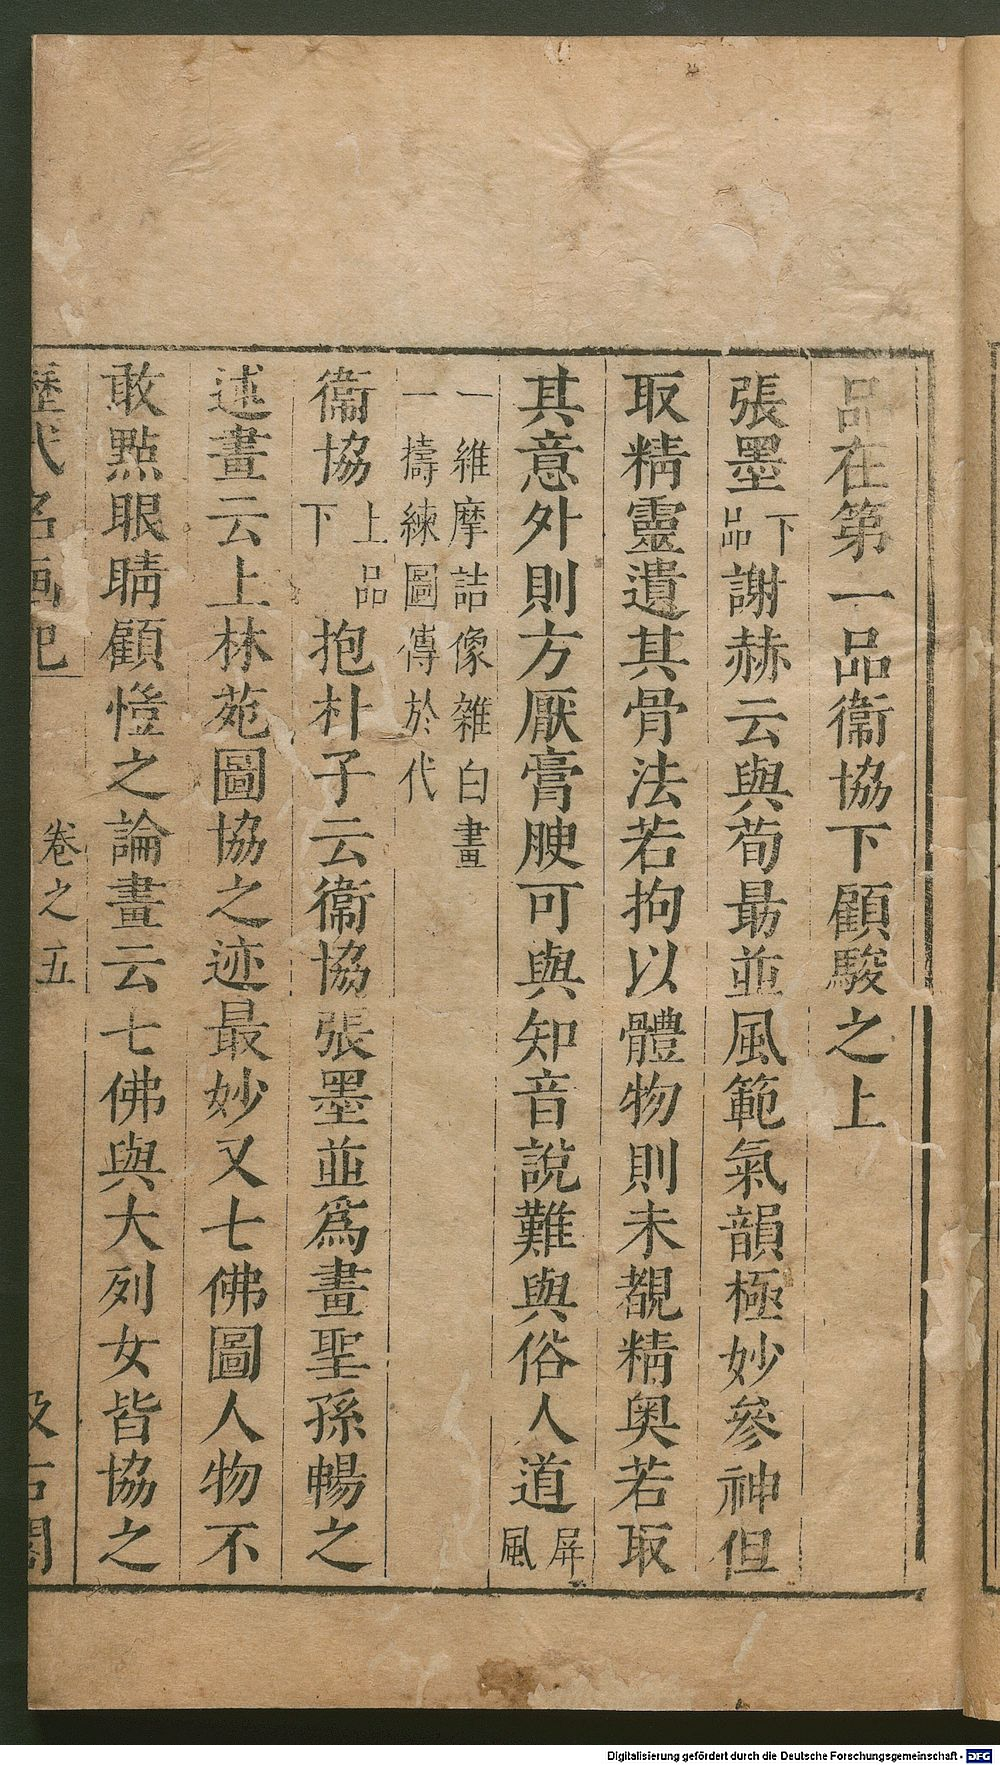 品在第一品衞協下顧駿之上
張墨下品謝赫云與荀最並風範氣韻極妙參神但
取精靈遺其骨法若拘以體物則未覩精奥若取
其意外則方厭膏腴可與知音說難與俗人道屏風
一維摩詰像雜白畫
一擣練圖傳於代
衞協上品下抱朴子云衞協張墨並爲畫聖孫暢之
述畫云上林苑圖協之迹最妙又七佛圖人物不
敢點眼睛顧愷之論畫云七佛與大列女皆協之
歷代名画記 卷之五 汲古閣
Digitalisierung gefördert durch die Deutsche Forschungsgemeinschaft - DFG